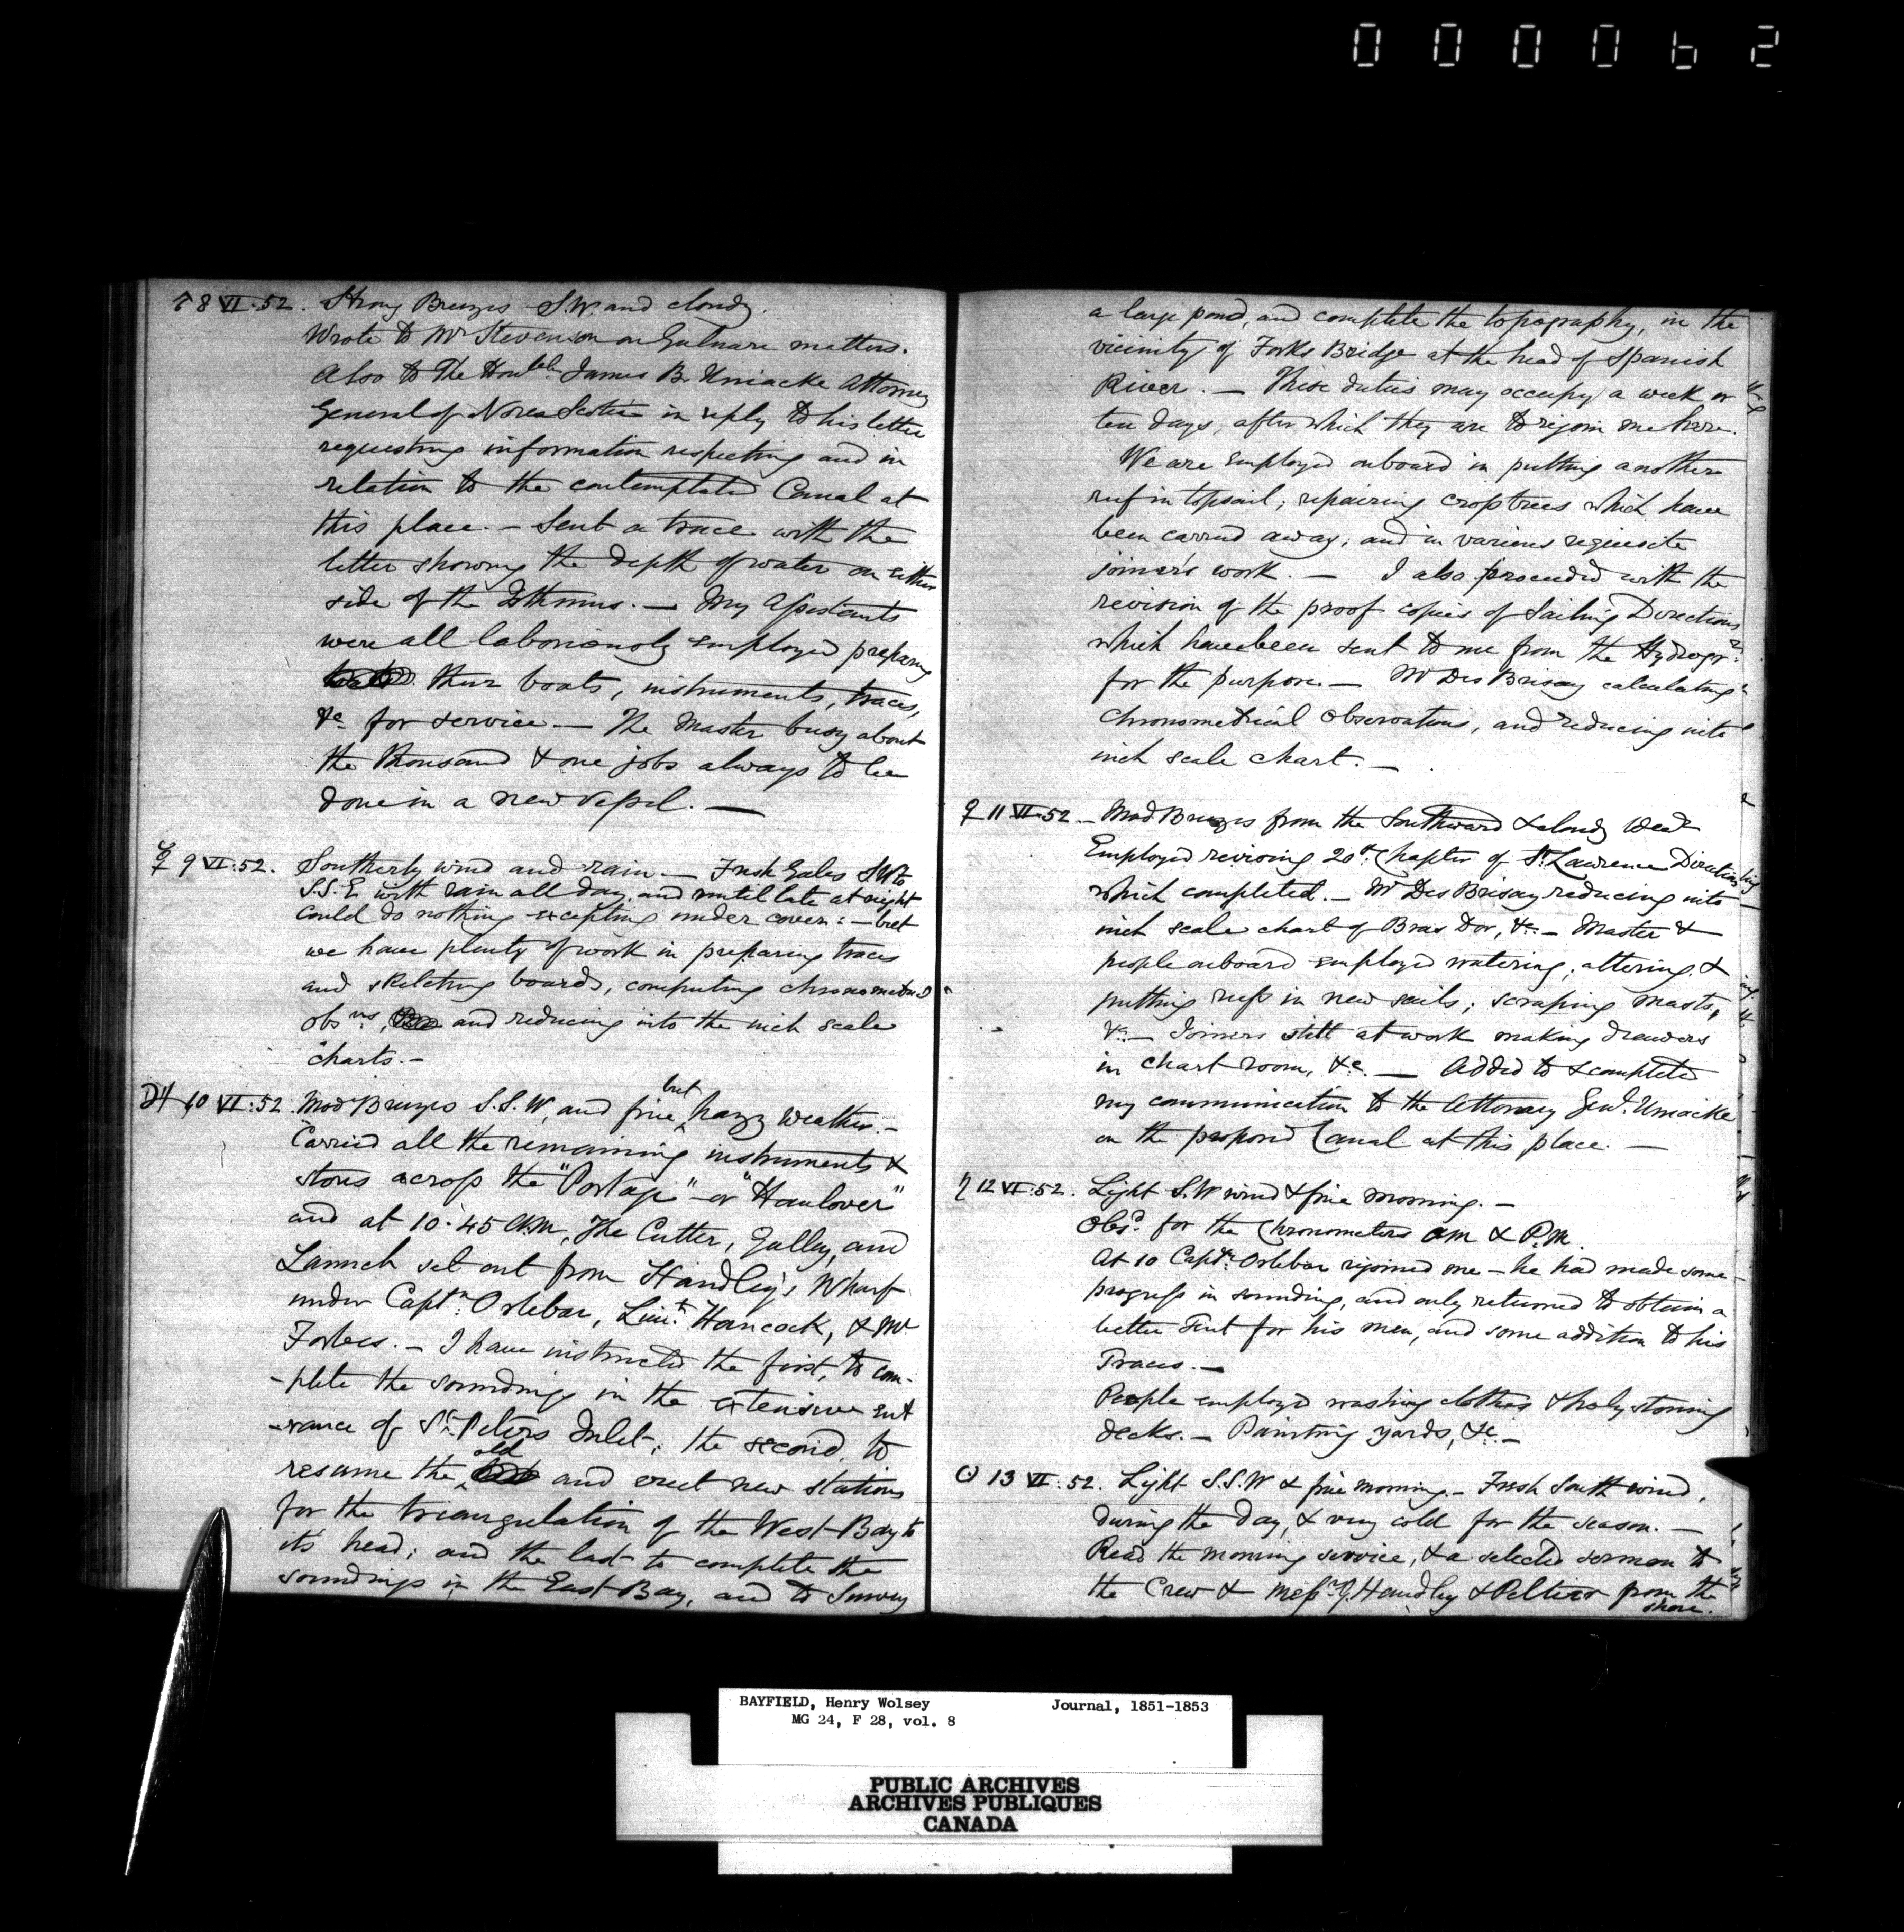 000062
♂ 8 VI. 52. Strong Breezes S.W. and cloudy.
Wrote to Mr Stevenson on Gulnare matters.
Also to The Honble. James B. Uniacke Attorney
General of Nova Scotia in reply to his letter
requesting information respecting and in
relation to the contemplated Canal at
this place. — Sent a trace with the
letter showing the depth of water on either
side of the Isthmus. — My Assistants
were all laboriously employed preparing
their boats, instruments, traces,
&c for service — The Master busy about
the thousand & one jobs always to be
done in a new Vessel. —
☿ 9 VI: 52. Southerly wind and rain. — Fresh Gales SW to
S.S.E. with rain all day, and until late at night
could do nothing excepting under cover: — but
we have plenty of work in preparing traces
and skeleting boards, computing chronometric
obsns, and reducing into the inch scale
charts. —
♃ 10 VI: 52. Mod Breezes S.S.W, and fine but hazy weather. —
Carried all the remaining instruments &
stores across the "Portage" or "Haulover"
and at 10.45 A.M, The Cutter, Galley, and
Launch set out from Handley's Wharf
under Captn. Orlebar, Lieut. Hancock, & Mr
Forbes. — I have instructed the first, to com-
-plete the soundings in the extensive ent
-rance of St. Peters Inlet; the second, to
resume the old and erect new stations
for the triangulation of the West Bay to
its head; and the last to complete the
soundings in the East Bay, and to Survey
a large pond, and complete the topography, in the
vicinity of Forks Bridge at the head of Spanish
River. — These duties may occupy a week or
ten days, after which they are to rejoin me here.
We are employed onboard in putting another
reef in topsail; repairing crosstrees which have
been carried away; and in various requisite
joiner's work. — I also proceeded with the
revision of the proof copies of Sailing Directions
which have been sent to me from the Hydrogr.
for the purpose. — Mr Des Brisay calculating
chronometrical observations, and reducing into
inch scale chart. —
♀ 11 VI. 52 — Mod Breezes from the Southward & cloudy Weat
Employed revising 20th. Chapter of St. Lawrence Directions
which completed. — Mr Des Brisay reducing into
inch scale chart of Bras Dor, &c. — Master &
people onboard employed watering; altering &
putting reefs in new sails; scraping masts,
&c. — Joiners still at work making drawers
in chart room, &c. — Added to & completed
my communication to the Attorney Genl. Uniacke
on the proposed Canal at this place. —
♄ 12 VI: 52. Light S.W wind & fine morning. —
Obsd. for the Chronometers AM & P.M.
At 10 Captn. Orlebar rejoined me — he had made some
progress in sounding, and only returned to obtain a
better Tent for his men, and some addition to his
Traces. —
People employed washing clothes & holystoning
decks. — Painting yards, &c. —
☉ 13 VI: 52. Light S.S.W & fine morning. — Fresh South wind,
during the day, & very cold for the season. —
Read the morning service, & a selected sermon to
the Crew & Messrs. Handley & Peltier from the
shore.
BAYFIELD, Henry Wolsey Journal, 1851-1853
MG 24, F 28, vol. 8
PUBLIC ARCHIVES
ARCHIVES PUBLIQUES
CANADA